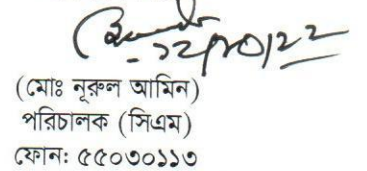 ১২/১০/২২
(মোঃ নূরুল আমিন)
পরিচালক (সিএম)
ফোন: ৫৫০৩০১১৩